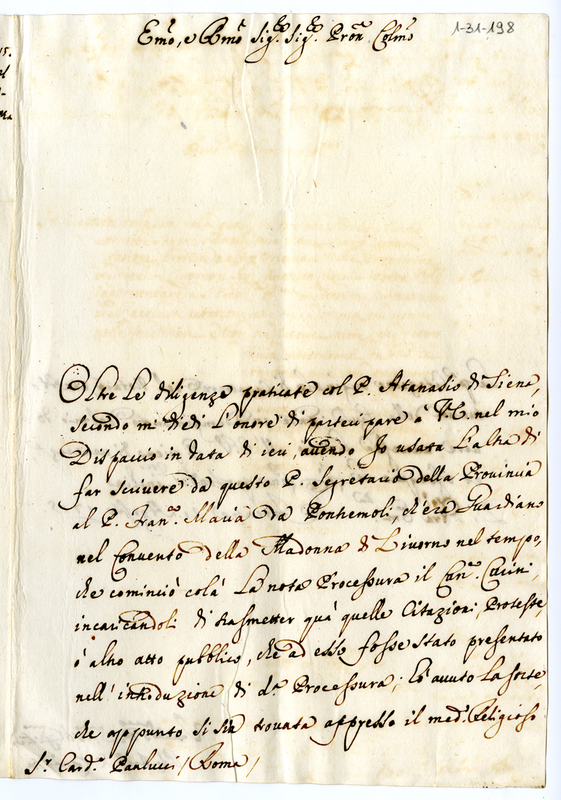 Emo, e Rmo Sig.re Sig.re Pron Colmo
1-31-198
Oltre le diligenze praticate col P. Atanasio di Siena,
secondo mi diedi l'onore di partecipare à V.E. nel mio
Dispaccio in data di ieri, avendo Io usata l'altra di
far scrivere da questo P. Segretario della Provincia
al P. Fran.o Maria da Pontremoli, ch'era Guardiano
nel Convento della Madonna di Livorno nel tempo,
che cominciò colà la nota Processura il Can.o
incaricandoli di trasmetter quà quelle Citazioni, Proteste,
ò altro atto pubblico, che ad esso fosse stato presentato
nell'introduzione di d.a Processura; hò avuto la sorte,
che appunto si sia trovata appresso il med.o Religioso
S.r Card.e Paulucci / Roma /